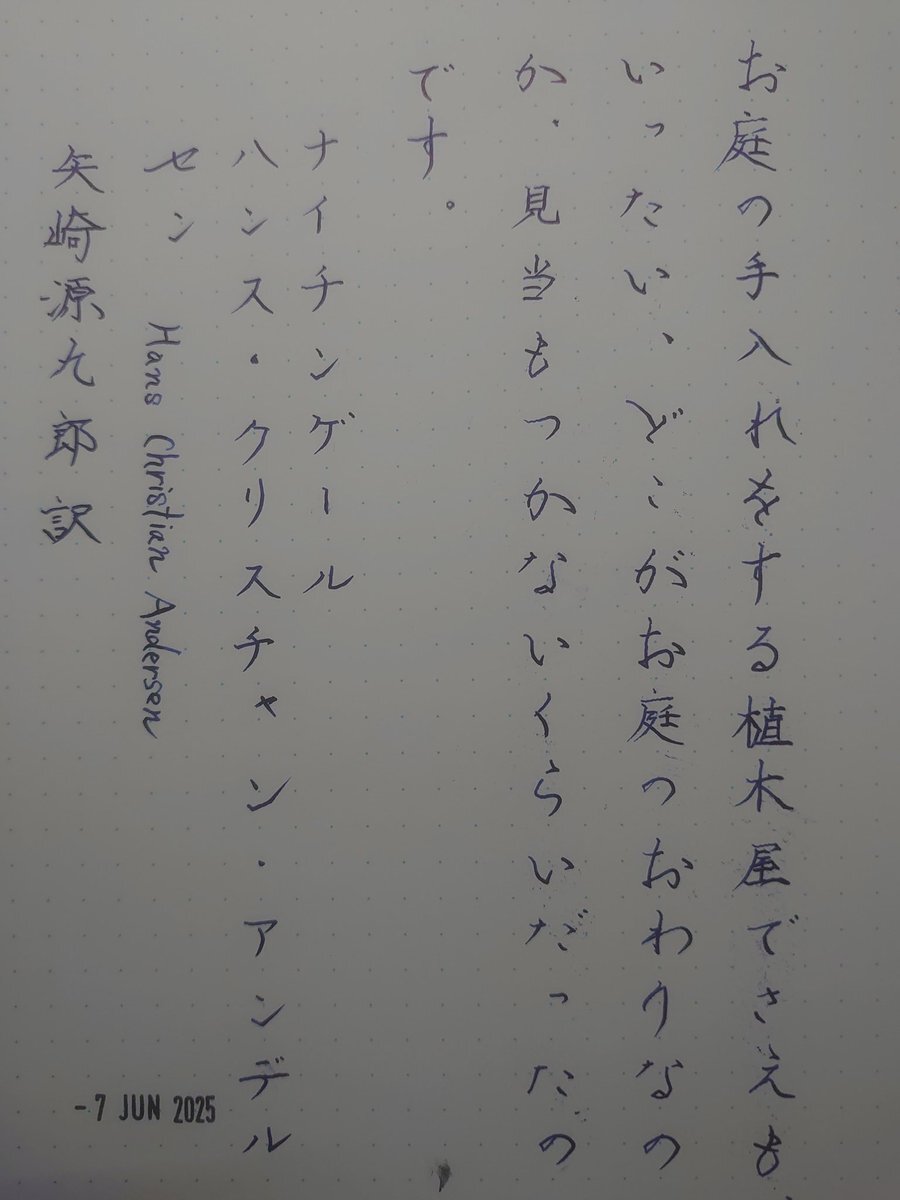 お庭の手入れをする植木屋でさえも、
いったい、どこがお庭のおわりなの
か、見当もつかないくらいだったの
です。
ナイチンゲール
ハンス・クリスチャン・アンデル
セン Hans Christian Andersen
矢崎源九郎訳
-7 JUN 2025